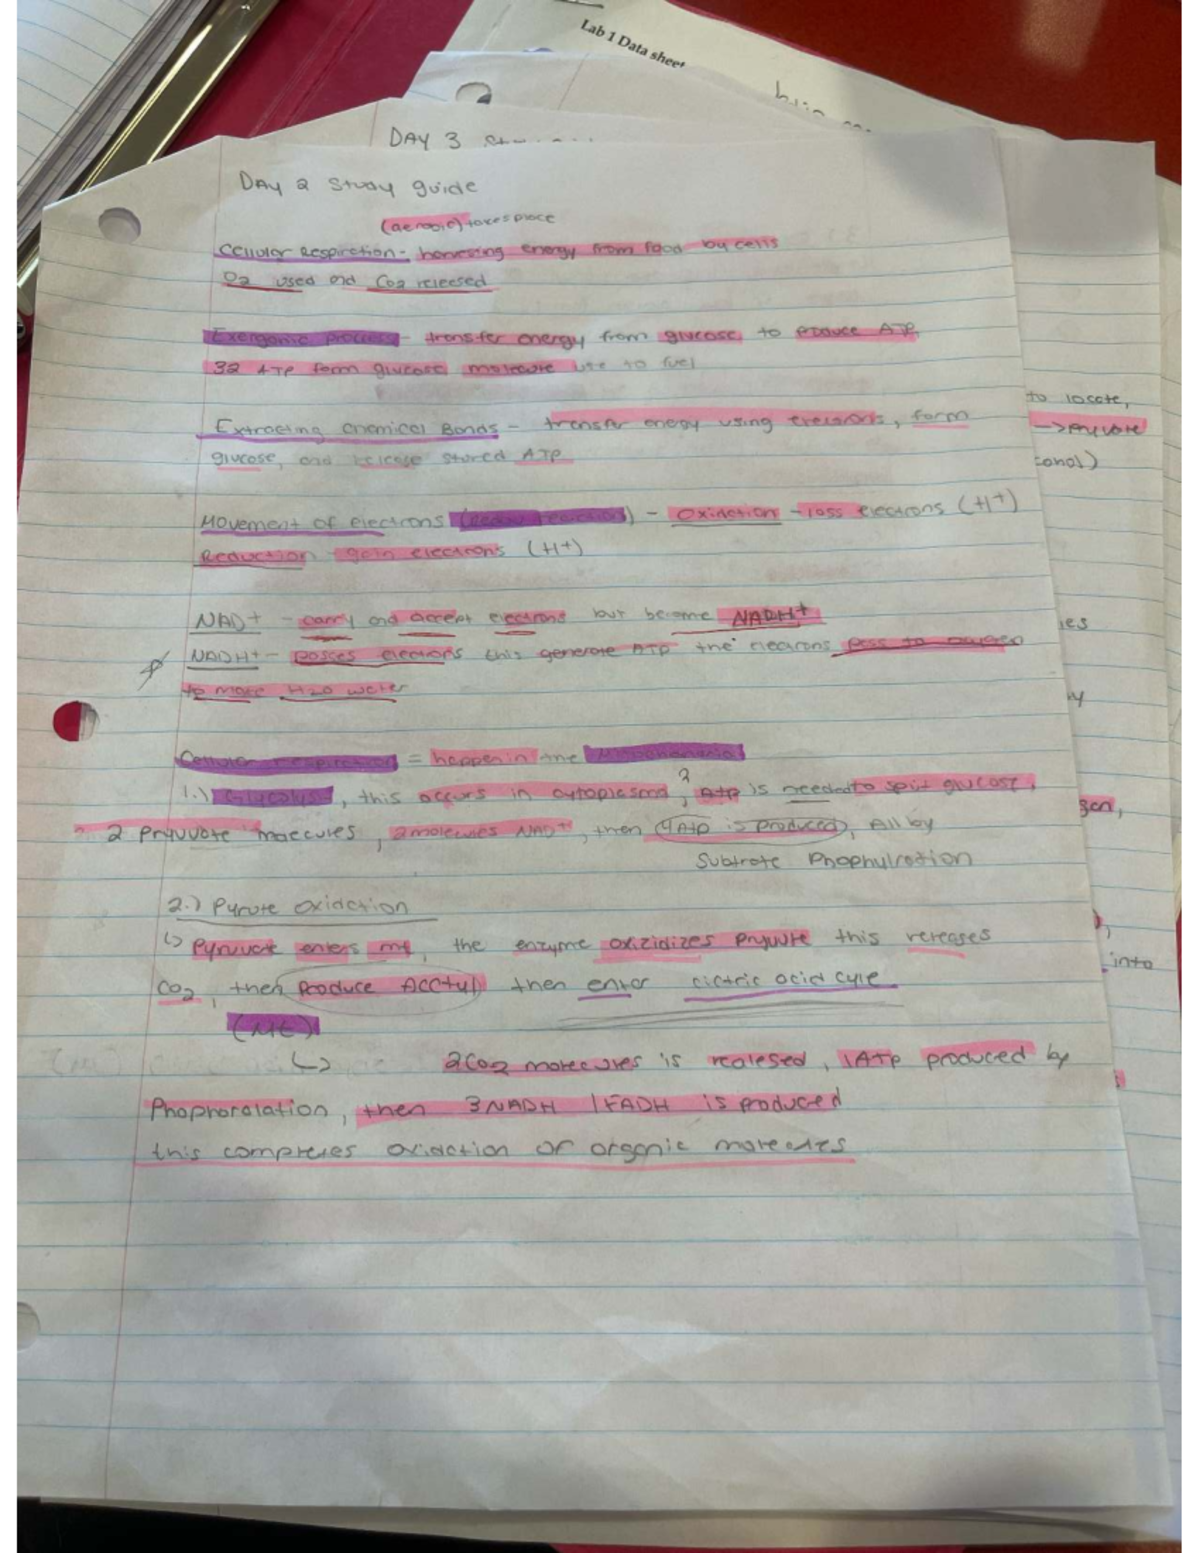 Lab 1 Data sheet
DAY 3
Day 2 Study guide
(aerobic) takes place
Cellular Respiration - harvesing energy from food by cells
O2 used and CO2 releesed
Exergonic process - transfer energy from glucose to produce ATP
32 ATP form glucose molecule use to fuel
Extracting Chemical Bonds - transfer energy using elecrons, form
glucose, and release stored ATP
Movement of electrons (Redox reaction) - Oxidation - loss electrons (H+)
Reduction - gain electrons (H+)
NAD+ - carry and accept electrons but become NADH+
NADH+ - posses electrons this generate ATP the electrons pass to oxygen
to make H2O water
Cellular respiration = happen in the Mitochondria
1.) Glycolysis, this occurs in cytoplasma, 2 ATP is needed to split glucose,
2 Pryuvate molecules, 2 molecules NAD+, then 4ATP is produced, All by
Subtrate Phophylration
2.) Pyrute oxidation
↳ Pyruvate enters mt, the enzyme oxizidizes pryuvte this releases
CO2, then produce Acctyl then enter cictric acid cyle
(Mt)
↳ 2CO2 molecules is realesed, 1ATP produced by
Phophorolation, then 3NADH 1FADH is produced
this completes oxidation of organic molecules
to locate,
→ Pryuvate
into